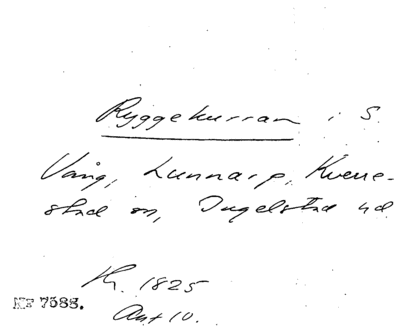 Ryggekurran i S.
Vång, Lunnarp, Kverre-
stad sn, Ingelstad hd
Kr. 1825
Ant 10.
KF 7583.